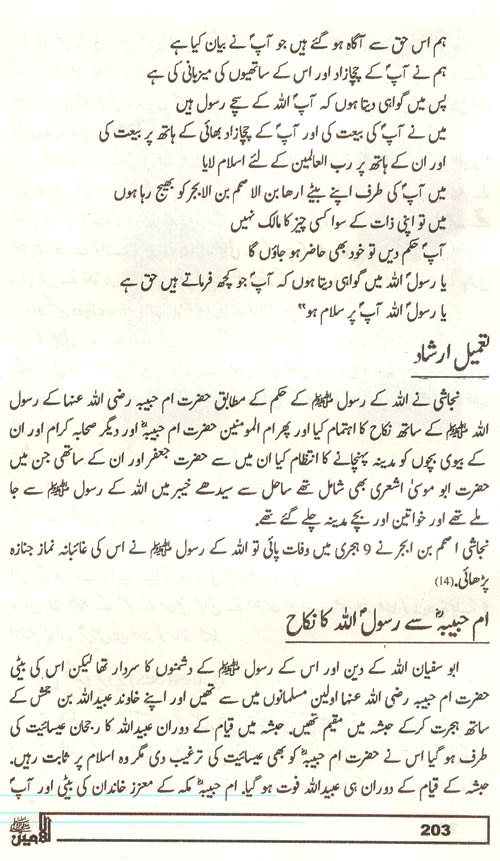 ہم اس حق سے آگاہ ہو گئے ہیں جو آپؐ نے بیان کیا ہے
ہم نے آپؐ کے چچازاد اور اس کے ساتھیوں کی میزبانی کی ہے
پس میں گواہی دیتا ہوں کہ آپؐ اللہ کے سچے رسول ہیں
میں نے آپؐ کی بیعت کی اور آپؐ کے چچازاد بھائی کے ہاتھ پر بیعت کی
اور ان کے ہاتھ پر رب العالمین کے لئے اسلام لایا
میں آپؐ کی طرف اپنے بیٹے ارھا بن الا صحم بن الابجر کو بھیج رہا ہوں
میں تو اپنی ذات کے سوا کسی چیز کا مالک نہیں
آپؐ حکم دیں تو خود بھی حاضر ہو جاؤں گا
یا رسول اللہ میں گواہی دیتا ہوں کہ آپؐ جو کچھ فرماتے ہیں حق ہے
یا رسولؐ اللہ آپؐ پر سلام ہو"
تعمیل ارشاد
نجاشی نے اللہ کے رسول ﷺ کے حکم کے مطابق حضرت ام حبیبہ رضی اللہ عنہا کے رسول
اللہ ﷺ کے ساتھ نکاح کا اہتمام کیا اور پھر ام المومنین حضرت ام حبیبہؓ اور دیگر صحابہ کرام اور ان
کے بیوی بچوں کو مدینہ پہنچانے کا انتظام کیا ان میں سے حضرت جعفر اور ان کے ساتھی جن میں
حضرت ابو موسیٰ اشعری بھی شامل تھے ساحل سے سیدھے خیبر میں اللہ کے رسول ﷺ سے جا
ملے تھے اور خواتین اور بچے مدینہ چلے گئے تھے۔
نجاشی اصحم بن ابجر نے 9 ہجری میں وفات پائی تو اللہ کے رسول ﷺ نے اس کی غائبانہ نماز جنازہ
پڑھائی۔(14)
ام حبیبہؓ سے رسولؐ اللہ کا نکاح
ابو سفیان اللہ کے دین اور اس کے رسول ﷺ کے دشمنوں کا سردار تھا لیکن اس کی بیٹی
حضرت ام حبیبہ رضی اللہ عنہا اولین مسلمانوں میں سے تھیں اور اپنے خاوند عبیداللہ بن جحش کے
ساتھ ہجرت کرکے حبشہ میں مقیم تھیں۔ حبشہ میں قیام کے دوران عبیداللہ کا رجحان عیسائیت کی
طرف ہو گیا اس نے حضرت ام حبیبہؓ کو بھی عیسائیت کی ترغیب دی مگر وہ اسلام پر ثابت رہیں۔
حبشہ کے قیام کے دوران ہی عبیداللہ فوت ہو گیا۔ ام حبیبہؓ مکہ کے معزز خاندان کی بیٹی اور آپؐ
الامینﷺ
203